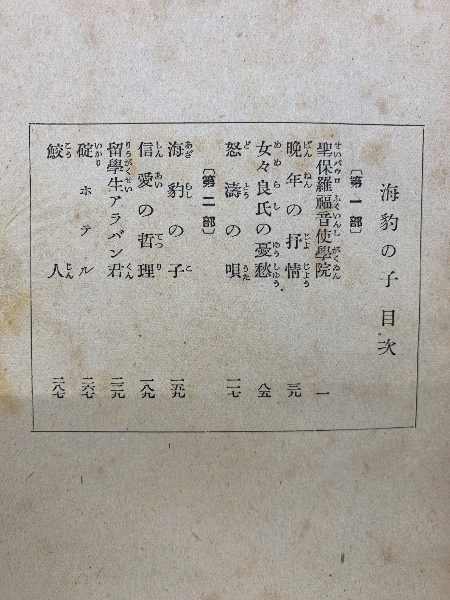 海豹の子 目次
〔第一部〕
聖保羅福音使學院 一
晩年の抒情 三九
女々良氏の憂愁 八五
怒濤の唄 一一七
〔第二部〕
海豹の子 一五九
信愛の哲理 一八九
留學生アラバン君 二二九
碇ホテル 二六七
鮫人 二八七